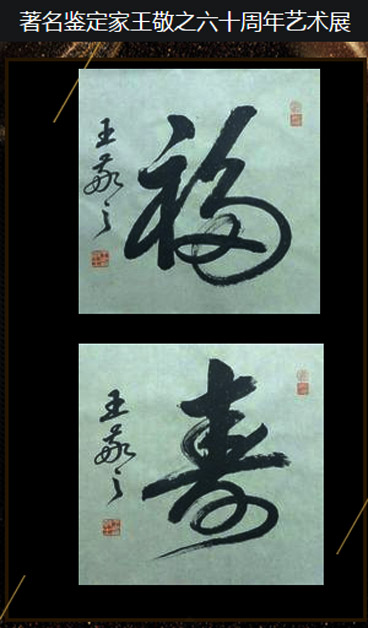 著名鉴定家王敬之六十周年艺术展
福
王敬之
寿
王敬之